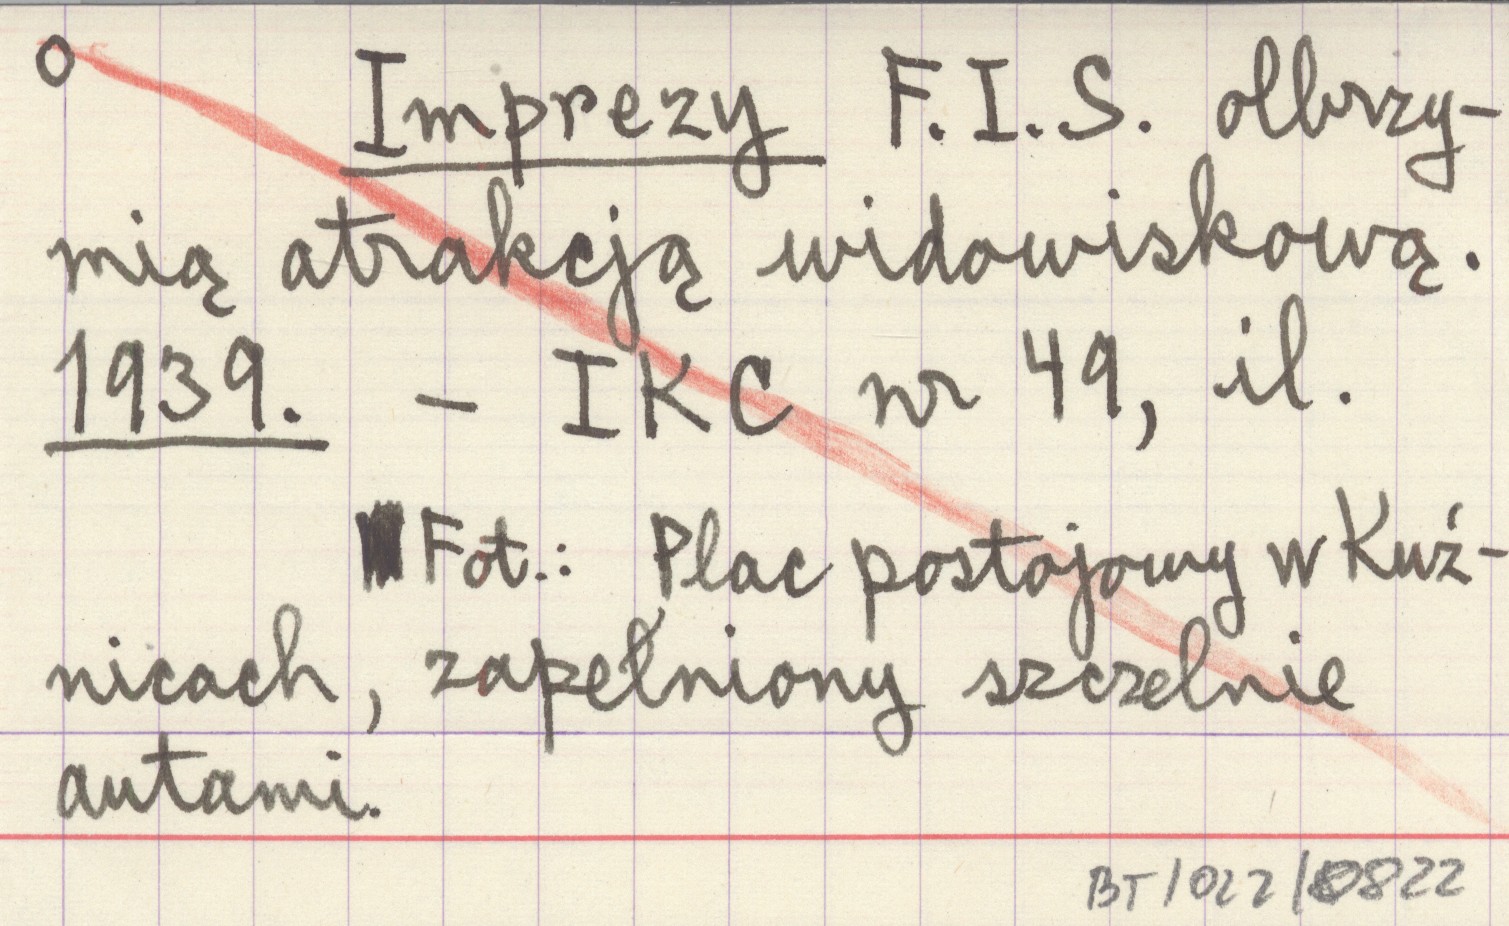 o Imprezy F.I.S. olbrzy-
mią atrakcją widowiskową.
1939. - IKC nr 49, il.
Fot.: Plac postojowy w Kuź-
nicach, zapełniony szczelnie
autami.
BT/022/0822